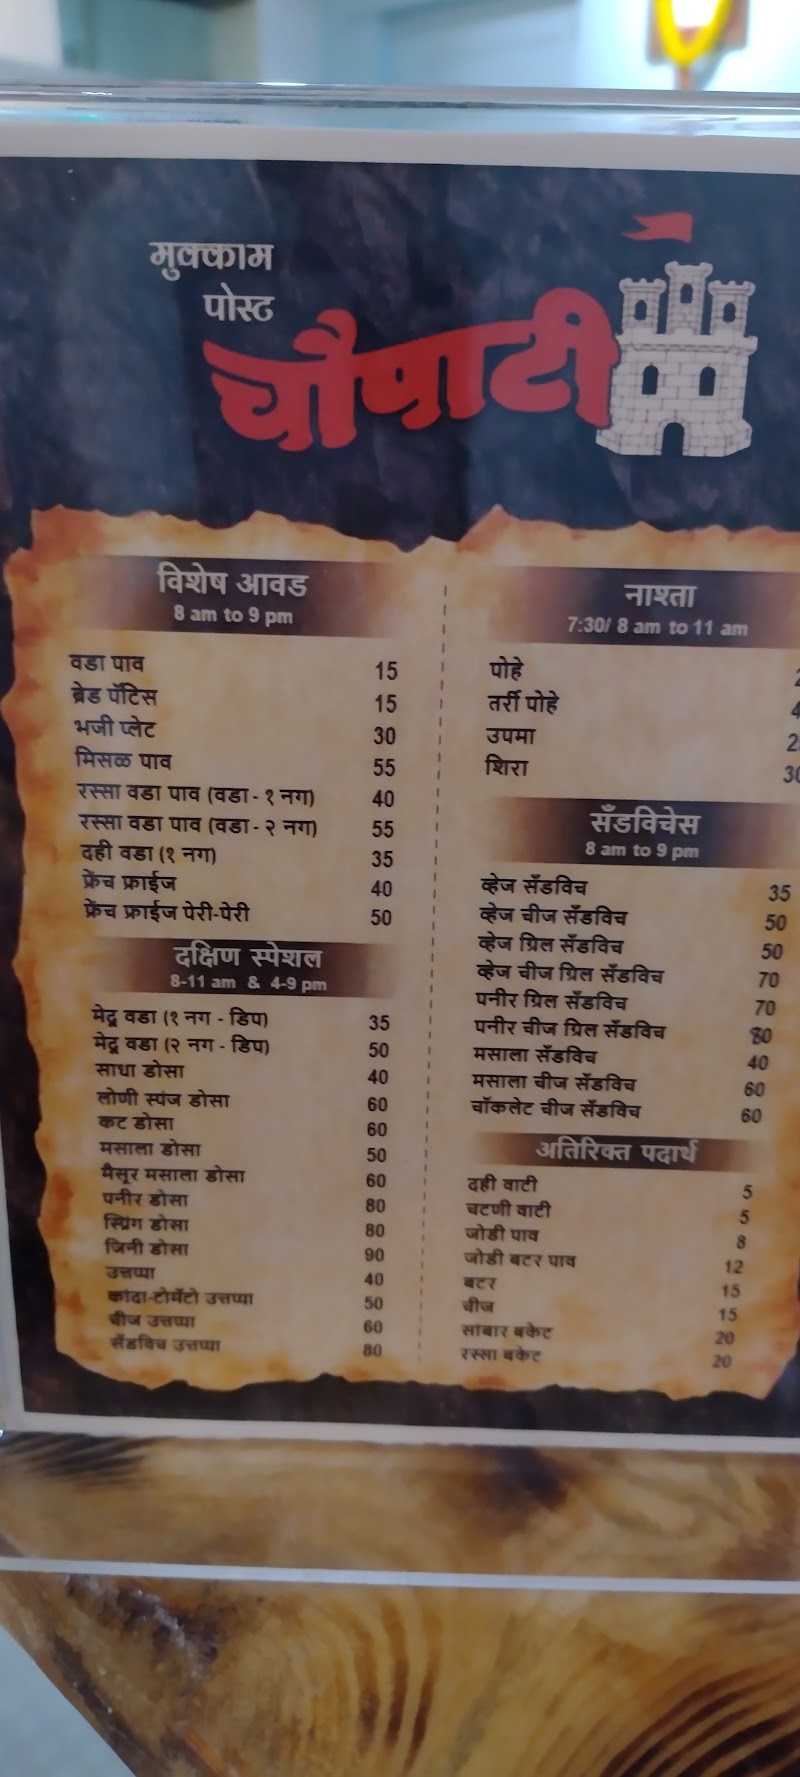 मुक्काम
पोस्ट
चौपाटी
विशेष आवड
8 am to 9 pm
वडा पाव 15
ब्रेड पॅटिस 15
भजी प्लेट 30
मिसळ पाव 55
रस्सा वडा पाव (वडा - १ नग) 40
रस्सा वडा पाव (वडा - २ नग) 55
दही वडा (१ नग) 35
फ्रेंच फ्राईज 40
फ्रेंच फ्राईज पेरी-पेरी 50
दक्षिण स्पेशल
8-11 am & 4-9 pm
मेदू वडा (१ नग - डिप) 35
मेदू वडा (२ नग - डिप) 50
साधा डोसा 40
लोणी स्पंज डोसा 60
कट डोसा 60
मसाला डोसा 50
मैसूर मसाला डोसा 60
पनीर डोसा 80
स्प्रिंग डोसा 80
जिनी डोसा 90
उत्तप्पा 40
कांदा-टोमॅटो उत्तप्पा 50
चीज उत्तप्पा 60
सँडविच उत्तप्पा 80
नाश्ता
7:30/ 8 am to 11 am
पोहे
तर्री पोहे
उपमा
शिरा 30
सँडविचेस
8 am to 9 pm
व्हेज सँडविच 35
व्हेज चीज सँडविच 50
व्हेज ग्रिल सँडविच 50
व्हेज चीज ग्रिल सँडविच 70
पनीर ग्रिल सँडविच 70
पनीर चीज ग्रिल सँडविच 80
मसाला सँडविच 40
मसाला चीज सँडविच 60
चॉकलेट चीज सँडविच 60
अतिरिक्त पदार्थ
दही वाटी 5
चटणी वाटी 5
जोडी पाव 8
जोडी बटर पाव 12
बटर 15
चीज 15
सांबार बकेट 20
रस्सा बकेट 20